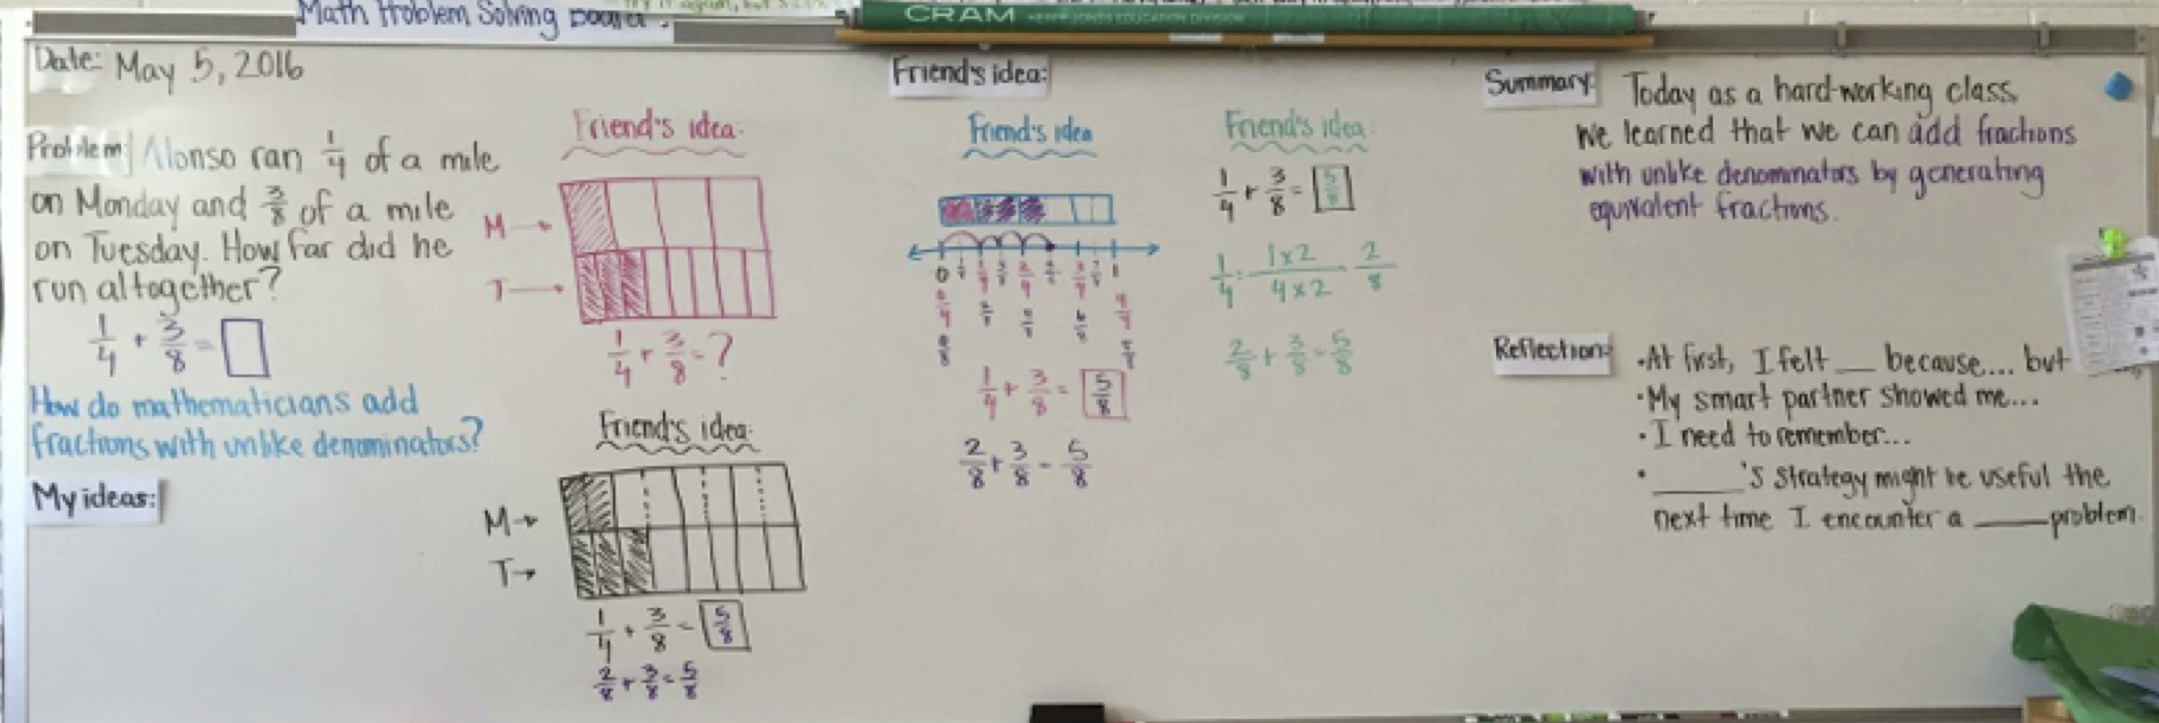 Math Problem Solving Board:
CRAM
Date: May 5, 2016
Problem: Alonso ran 1/4 of a mile
on Monday and 3/8 of a mile
on Tuesday. How far did he
run altogether?
1/4 + 3/8 = □
How do mathematicians add
fractions with unlike denominators?
My ideas:
Friend's idea:
M→
T→
1/4 + 3/8 = ?
Friend's idea:
M→
T→
1/4 + 3/8 = 5/8
2/8 + 3/8 = 5/8
Friend's idea:
Friend's idea
0
1
1/4 + 3/8 = 5/8
2/8 + 3/8 = 5/8
Friend's idea:
1/4 + 3/8 = 5/8
1/4 = 1x2 / 4x2 2/8
2/8 + 3/8 = 5/8
Summary: Today as a hard-working class,
we learned that we can add fractions
with unlike denominators by generating
equivalent fractions.
Reflection: •At first, I felt ___ because.... but
•My smart partner showed me...
•I need to remember...
•_____'s strategy might be useful the
next time I encounter a ____ problem.